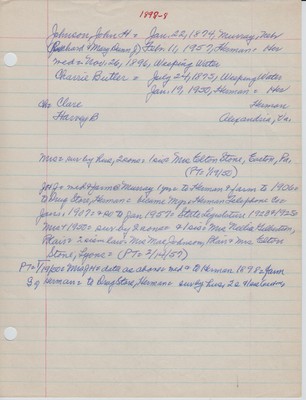 1898-8
Johnson, John H = Jan. 22, 1874, Murray, Neb
(Richard & Mary Dunn J) Feb. 11, 1957, Herman = Neb
md = Nov. 26, 1896, Weeping Water
Charrie Butler = July 24, 1875, Weeping Water
Jan. 19, 1950, Herman = Neb
ch= Clare Herman
Harvey B Alexandria, Va.
Mrs = sur by hus, 2 sons = 1 sis = Mrs Elton Stone, Easton, Pa.
(PT= 1/19/50)
md & farmed Murray 1 yr = to Herman & farm to 1906=
to Drug Store, Herman = became Mgr = Herman Telephone Co=
Jan = 1917 = to Jan 1957 = State Legislature 1923 & 1925
Mrs + 1950 = sur by 2 sons = & 1 sis = Mrs
Blair = 2 sis in law = Mrs Mae Johnson, Blair & Mrs Elton
Stone, Lyons = (PT= 2/14/57)
PT= Mrs JH = data as above = md = to Herman 1898 = farm
8 y Herman = to Drug Store, Herman = sur by hus, 2 s &